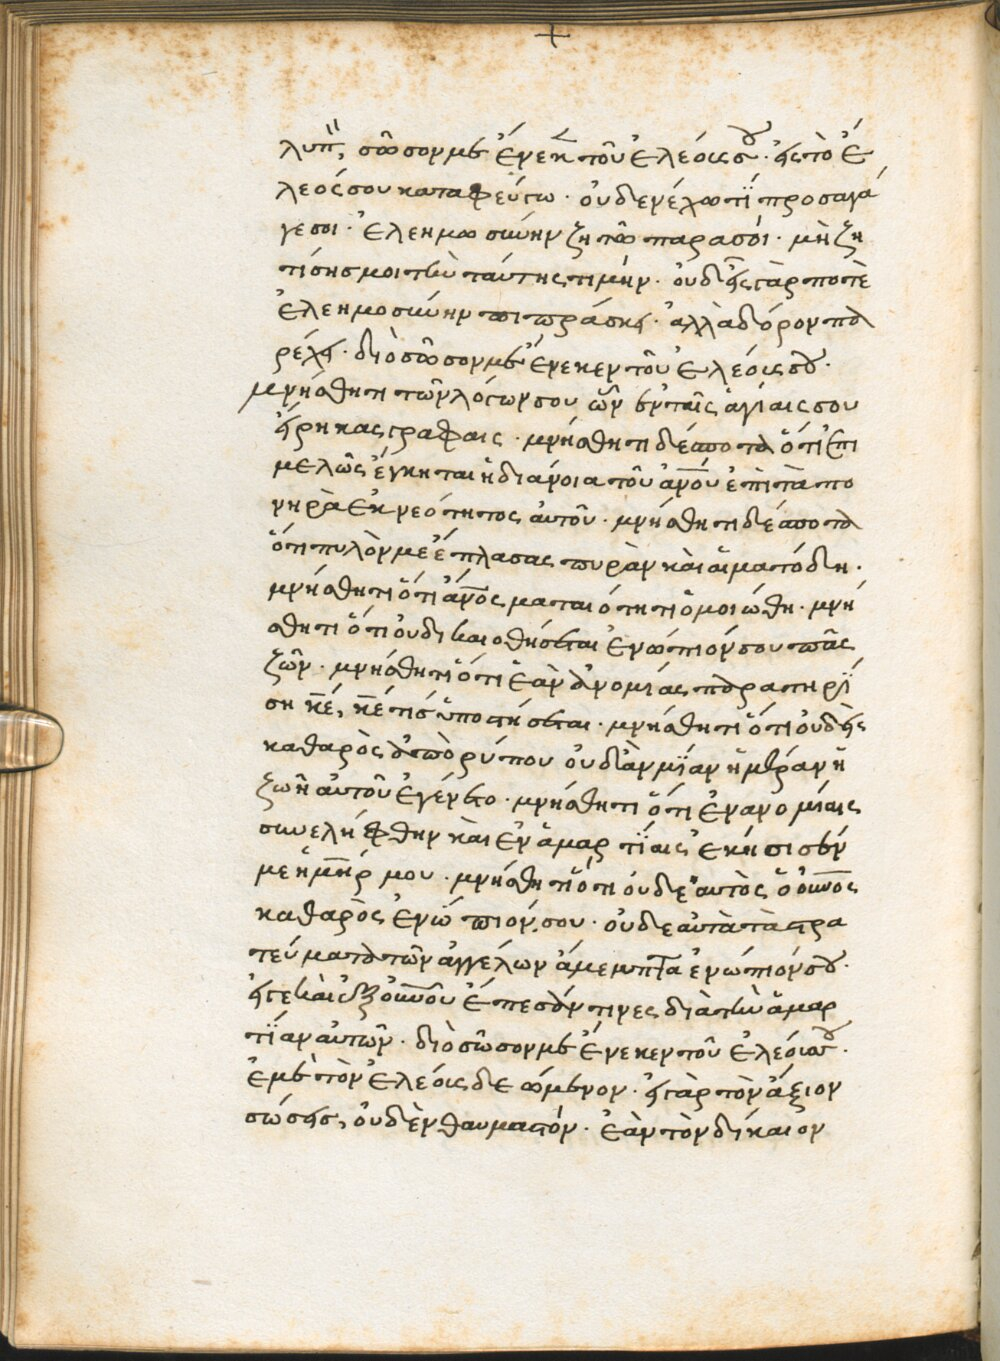 +
λυπ͂, σῶσον με ἕνεκ̅ τοῦ ἐλέους σου· εἰς τὸ ἔ
λεός σου καταφεύγω· οὐδεν ἔχω τΐ προσαγά
γεσοι· ἐλεημωσύνην ζητῶ παρασοί· μὴ ζη
τίσης μοι τὴν ταύτης τιμήν· οὐδεὶς γάρ ποτὲ
ἐλεημοσύνην πιπράσκει· ἀλλὰ δόρον πα
ρέχει· διὸ σῶσον με ἕνεκεν τοῦ ἐλέους σου·
μνήσθητι τῶν λόγων σου ὧν ἐν ταῖς ἁγίαις σου
εἴρηκας γραφαις· μνήσθητι δέσποτα ὅτι ἐπι
μελῶς ἔγκηται ἡ διάνοια τοῦ ἀν̅ου ἐπὶ τὰ πο
νηρὰ ἐκ νεότητος αὐτοῦ· μνήσθητι δέσποτα
ὅτι πυλὸν με ἔπλασας πυρὰν καὶ αἵματόδη·
μνήσθητι ὅτι ἄν̅ος ματαιότητι ὁμοιώθη· μνή
σθητι ὅτι οὐ δικαιοθήσεται ἐνώπιόν σου πᾶς
ζῶν· μνήσθητι ὅτι ἐὰν ἀνομίας παρατηρΐ
ση κ̅ε, κ̅ε τίς ὑποστήσεται· μνήσθητι ὅτι οὐδεὶς
καθαρὸς ἀπὸ ρύπου οὐδἂν μΐαν ἡμέραν ἡ
ζωὴ αὐτοῦ ἐγένετο· μνήσθητι ὅτι ἐν ανομίαις
συνελήφθην καὶ ἐν ἁμαρτΐαις ἐκήσισέν
με ἡ μ̅ηρ μου· μνήσθητι ὅτι οὐδε αυτὸς ὁ οὐ̅νος
καθαρὸς ἐνώπιόν σου· οὐδε αὐτὰ τὰ στρα
τεύματα τῶν ἀγγέλων ἄμεμπτα ἐνώπιόν σου·
εἴγε καὶ ἐξ οὐ̅νοῦ ἔπεσάν τινες διὰ τὴν ἁμαρ
τΐαν αὐτῶν· διὸ σῶσον με ἕνεκεν τοῦ ἐλέους σου·
ἐμὲ τὸν ἐλέους δεώμενον· εἰ γὰρ τὸν ἄξιον
σώσεις, οὐδὲν θαυμαστόν· ἐὰν τὸν δίκαιον